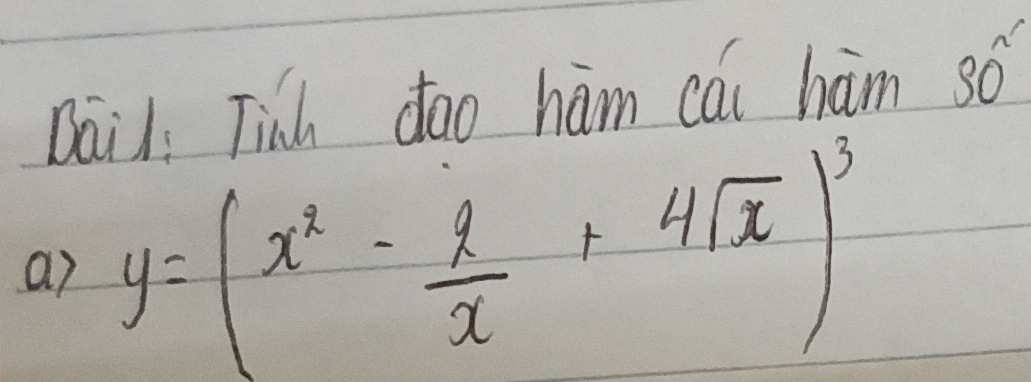 Bài 1: Tính đạo hàm cái hàm số
a) y = ( x² - 2/x + 4√x )³